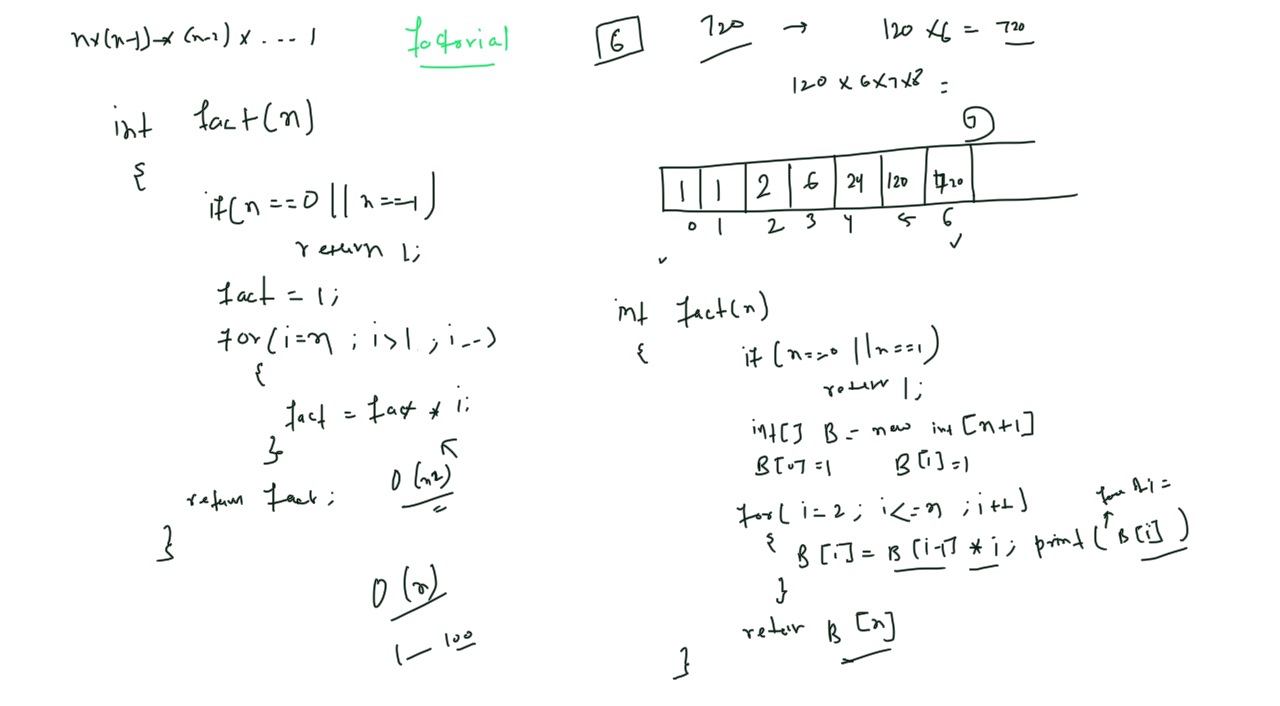 n×(n-1)×(n-2)× .... 1
Factorial
int fact(n)
{
if(n==0 || n==1)
return 1;
fact = 1;
for(i=n ; i>1 ; i--)
{
fact = fact * i;
}
return fact;
}
O(n2)
O(n)
1 — 100
6 720 → 120 ×6 = 720
120 × 6×7×8 =
6
1 1 2 6 24 120 720
0 1 2 3 4 5 6
int fact(n)
{
if (n==0 || n==1)
return 1;
int[] B = new int [n+1]
B[0]=1 B[1]=1
for( i=2 ; i<=n ; i++)
{
B[i] = B[i-1] * i; print( B[i] )
}
return B[n]
}